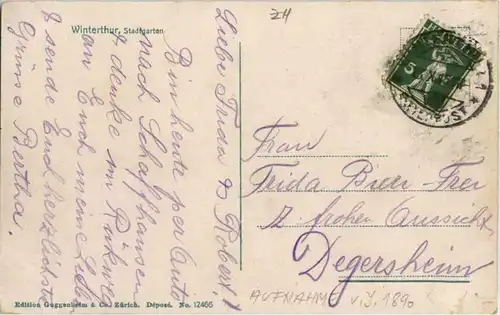 Winterthur, Stadtgarten
ZH
Liebe Frida & Robert!
Bin heute per Auto
nach Schaffhausen
& denke im Rückweg
an Euch meine Lieben
& sende Euch herzlichste
Grüsse Bertha.
5
Frau
Frida Frei
z. frohen Aussicht
Degersheim
AUFNAHME v. J. 1890
Edition Guggenheim & Co., Zürich. Déposé. No. 12466